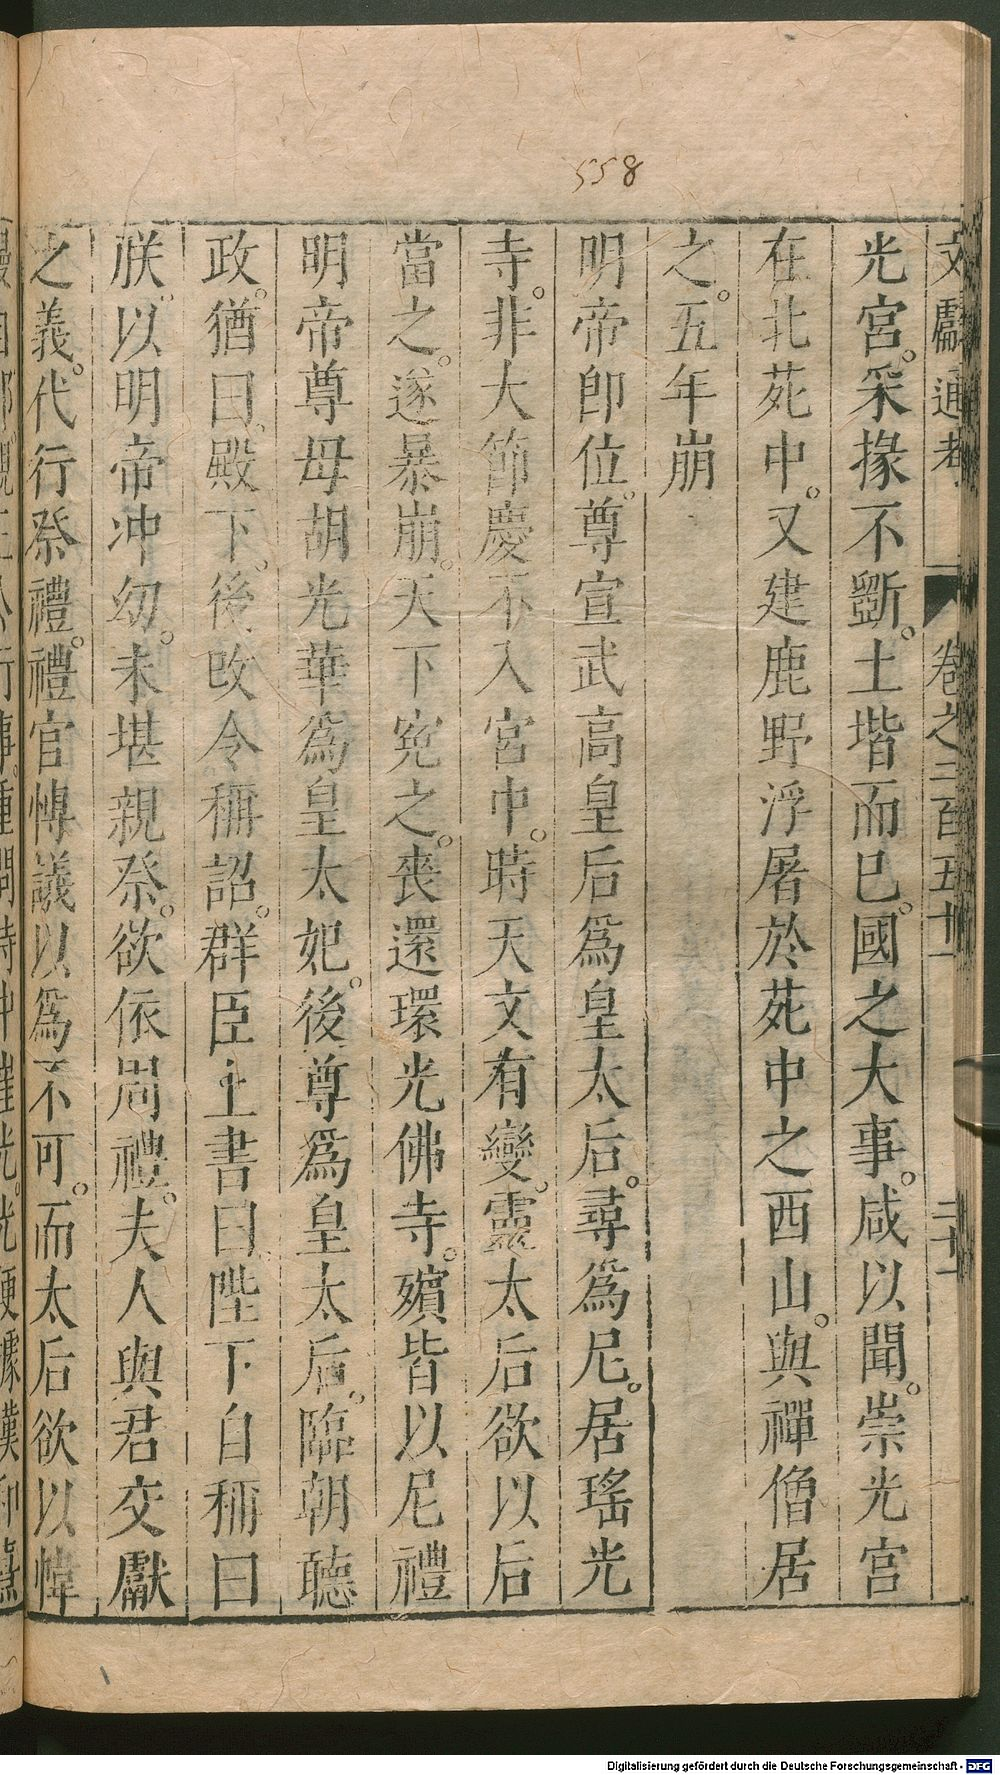 558
文獻通考 卷之二百五十一 三十一
光宮。采掾不斲。土堦而已。國之大事。咸以聞。崇光宮
在北苑中。又建鹿野浮屠於苑中之西山。與禪僧居
之。五年崩
明帝卽位。尊宣武高皇后爲皇太后。尋爲尼。居瑤光
寺。非大節慶不入宮中。時天文有變。靈太后欲以后
當之。遂暴崩。天下寃之。喪還環光佛寺。殯皆以尼禮
明帝尊母胡光華爲皇太妃。後尊爲皇太后。臨朝聽
政。猶曰殿下。後改令稱詔。群臣上書曰陛下自稱曰
朕。以明帝冲幼。未堪親祭。欲依周禮。夫人與君交獻
之義。代行祭禮。禮官愽議以爲不可。而太后欲以幃
Digitalisierung gefördert durch die Deutsche Forschungsgemeinschaft - DFG